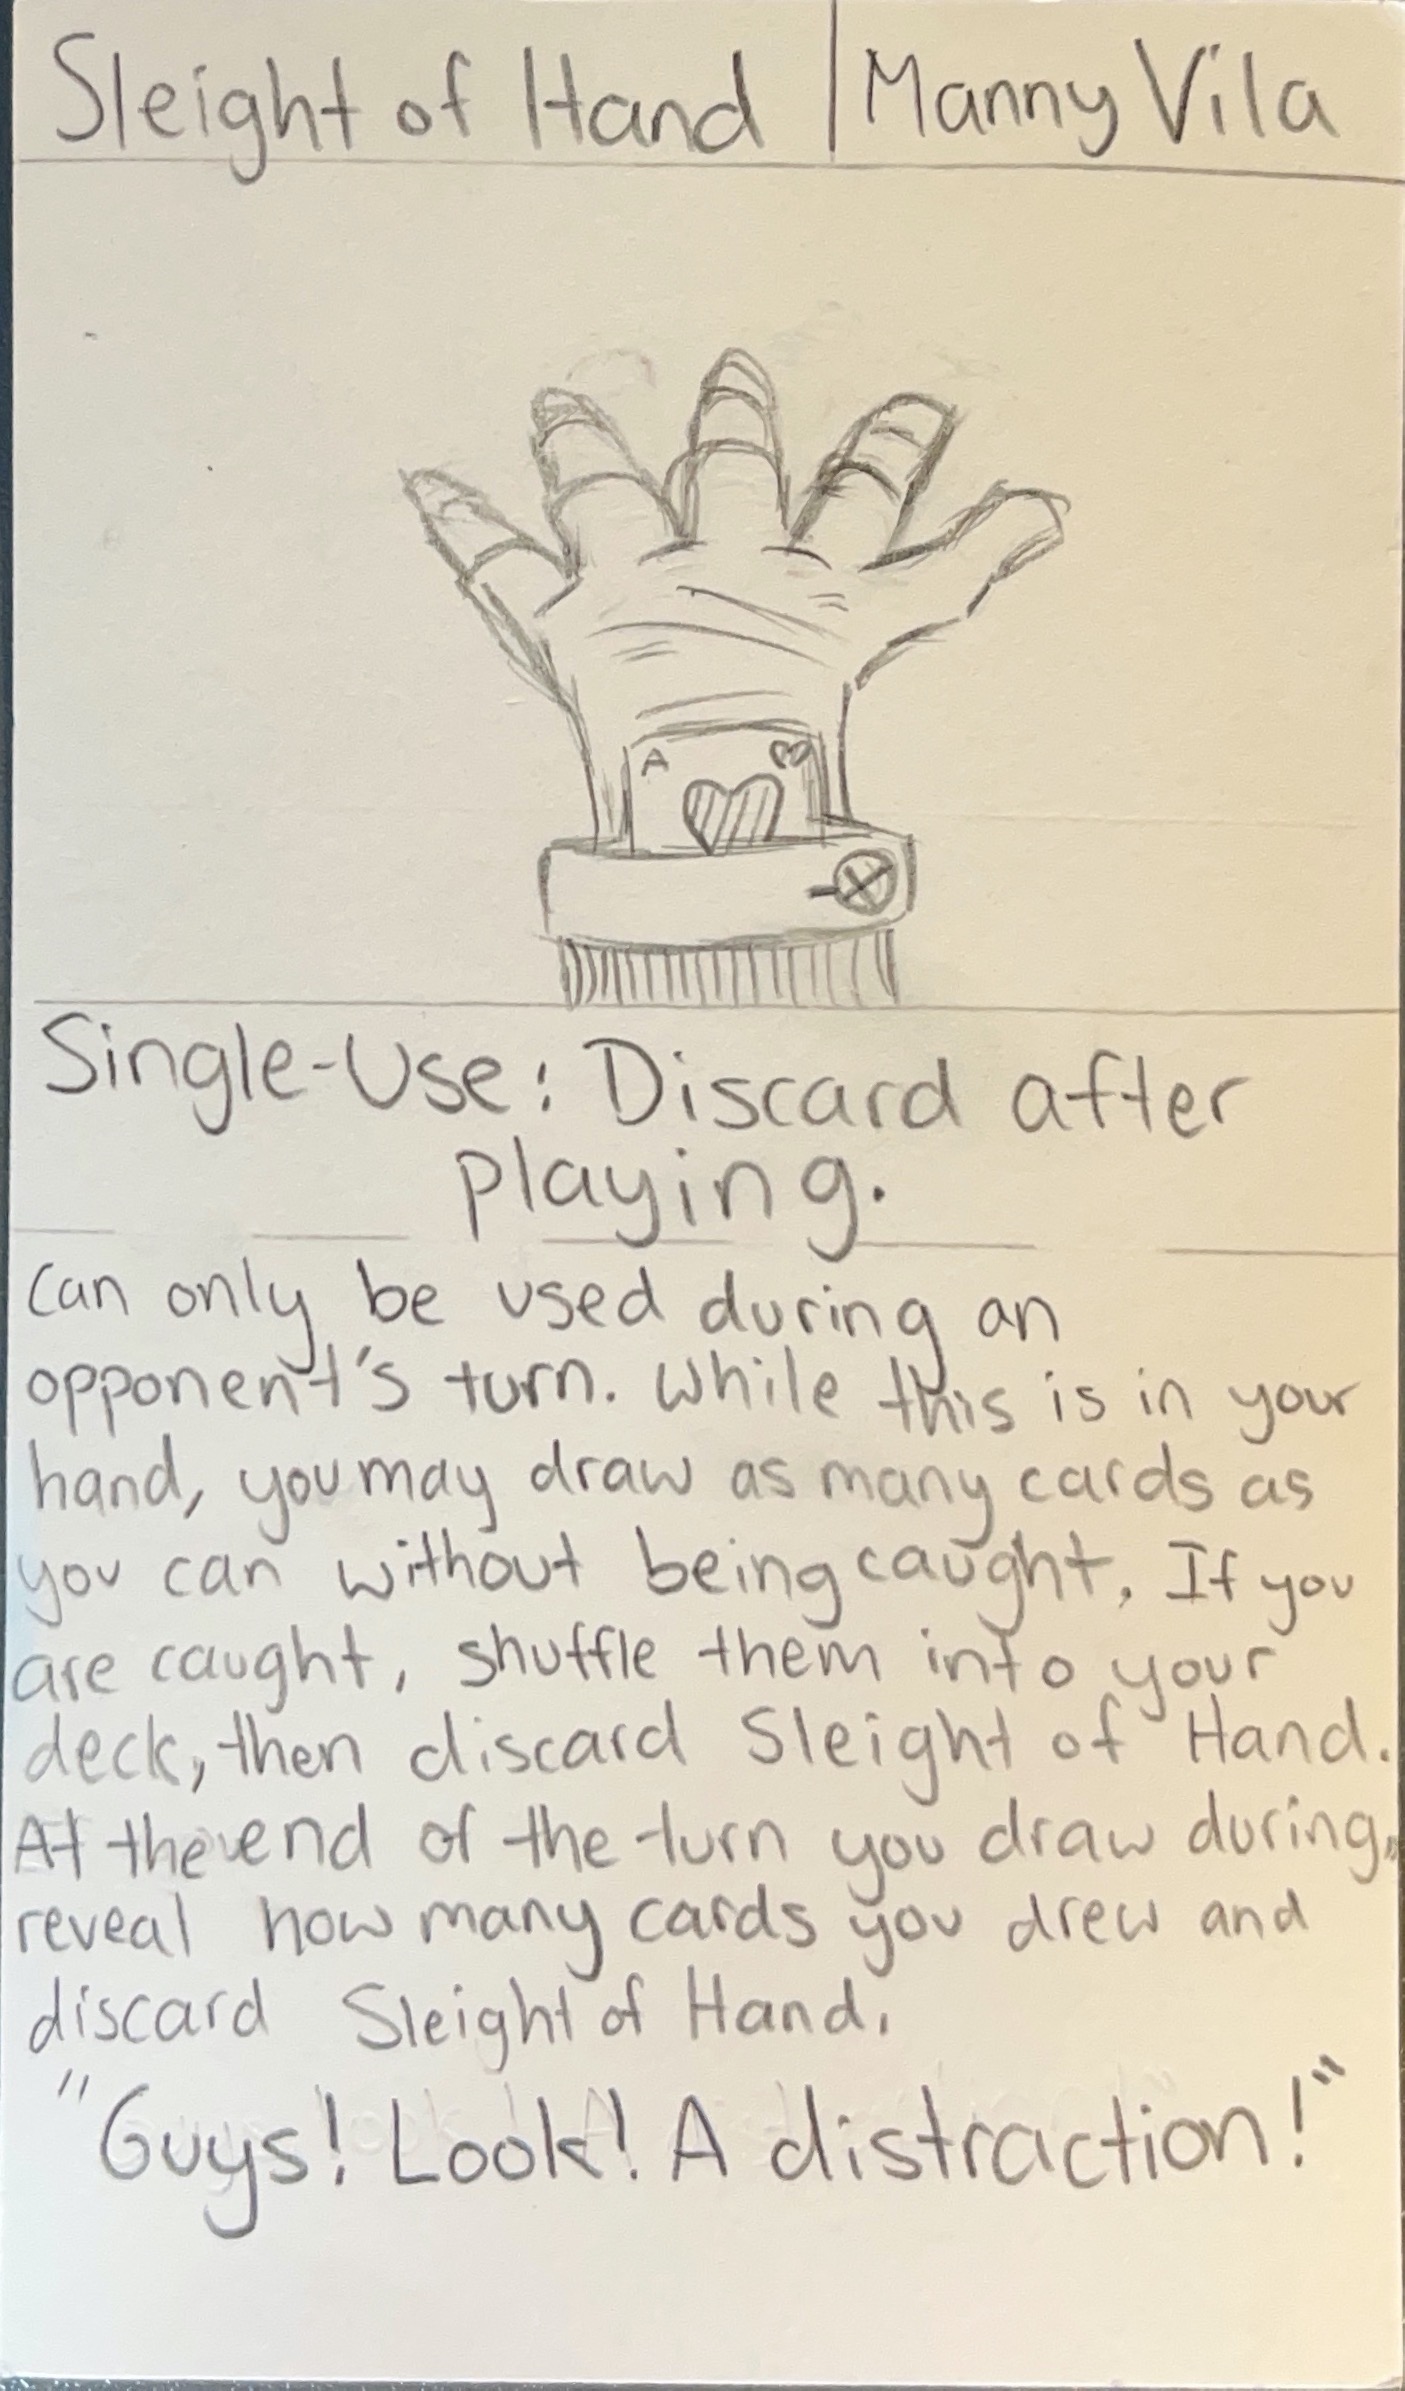 Sleight of Hand | Manny Vila
A
Single-Use: Discard after
playing.
Can only be used during an
opponent's turn. While this is in your
hand, you may draw as many cards as
you can without being caught. If you
are caught, shuffle them into your
deck, then discard Sleight of Hand.
At the end of the turn you draw during,
reveal how many cards you drew and
discard Sleight of Hand.
"Guys! Look! A distraction!"